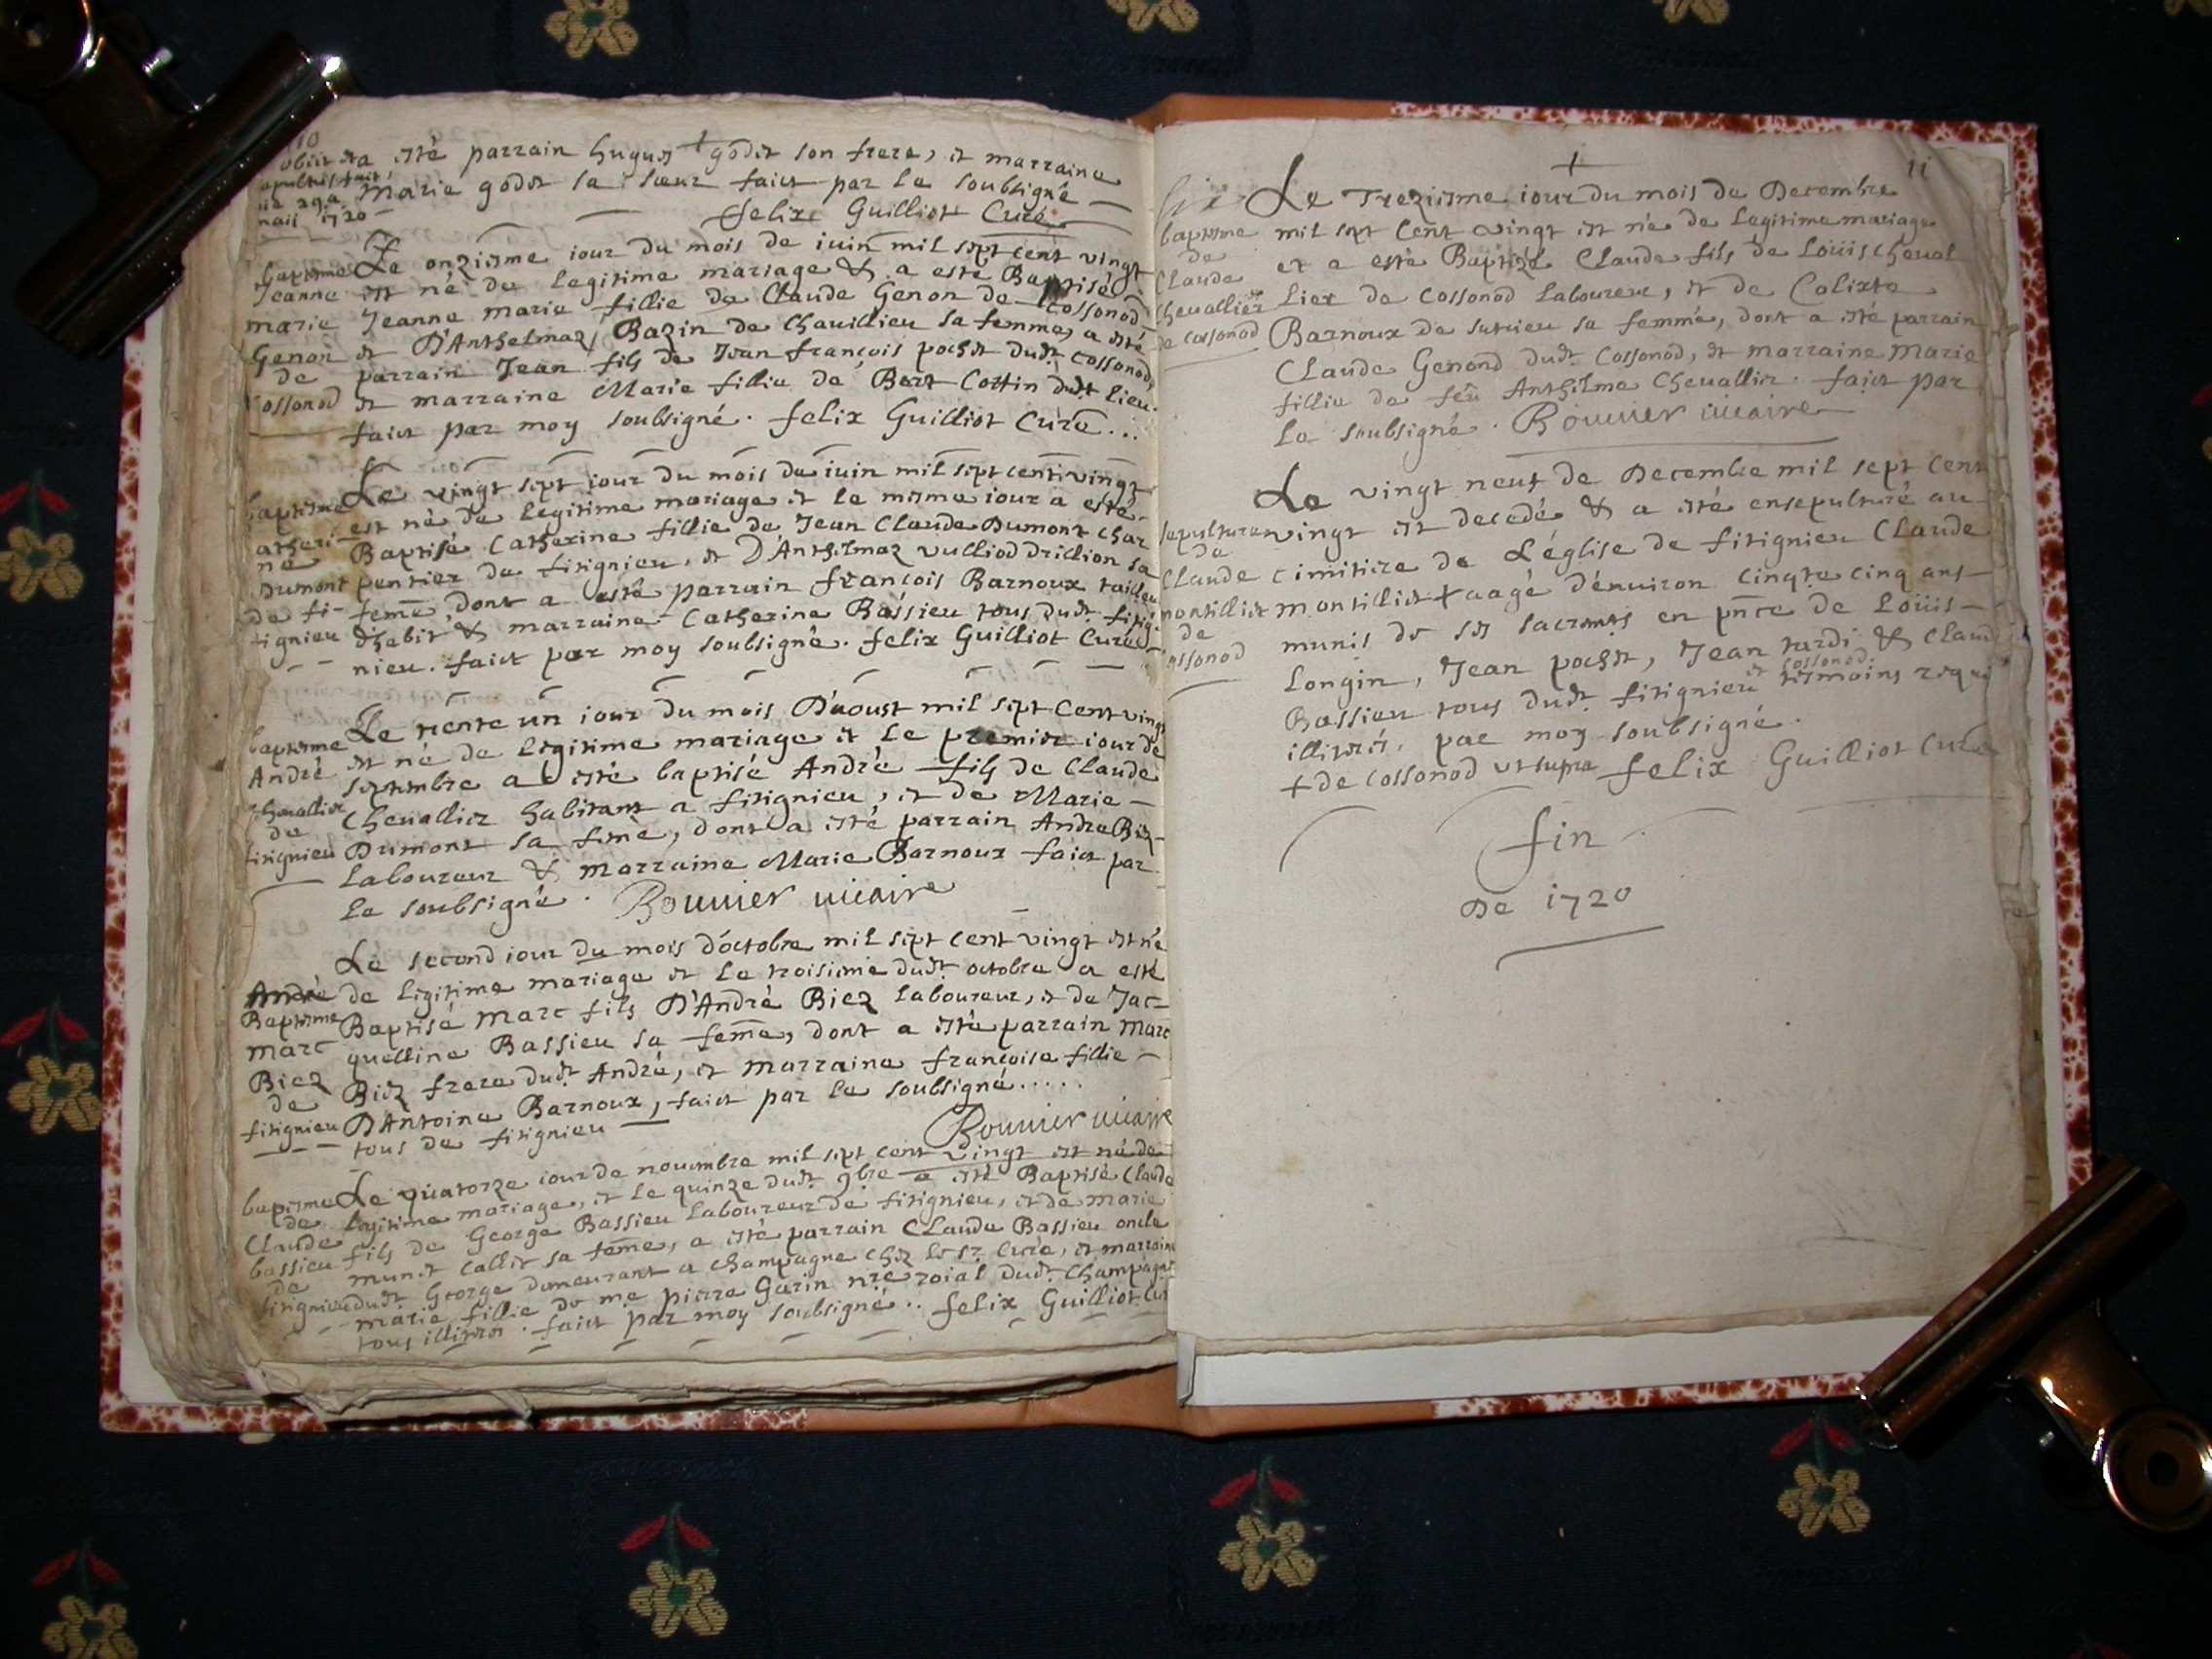 10
obiit et a esté parrain hugues godet son frere, et marraine
sepultus fuit
Marie godet sa sœur faict par le soubsigné
die 29a
maii 1720
felix Guilliot Curé
baptesme Le onziesme iour du mois de iuin mil sept cent vingt
Jeanne est né de legitime mariage & a esté Baptisé
marie Jeanne marie fillie de Claude Genon de Cossonod
Genon et D'Anthelmaz Bazin de Chauillieu sa femme, a esté
de parrain Jean fils de Jean françois pochet dudt cossonod,
Cossonod et marraine Marie fillie de Bert Cottin dudt lieu.
faict par moy soubsigné. felix Guilliot Curé...
Le vingt sept iour du mois de iuin mil sept cent vingt
baptesme est né de legitime mariage et le mesme iour a esté
catheri- Baptisé Catherine fillie de Jean Claude Dumont char
ne
Dumont pentier de fitignieu, et D'Anthelmaz vulliod drillion sa
de fi- feme dont a esté parrain françois Barnoux tailleur
tignieu d'habit & marraine Catherine Bassieu tous dudt fitig-
nieu. faict par moy soubsigné. felix Guilliot Curé
Le trente un iour du mois D'aoust mil sept Cent vingt
baptesme est né de legitime mariage et le premier iour de
André septembre a esté baptisé André fils de Claude
Cheuallier Cheuallier habitant a fitignieu, et de Marie
de
fitignieu Dumont sa feme, dont a esté parrain Andre Biez
laboureur & marraine Marie Barnoux faict par
le soubsigné. Bouuier uicaire
Le second iour du mois d'octobre mil sept cent vingt est né
André de legitime mariage et le troisieme dudt octobre a esté
Baptesme Baptisé Marc fils D'André Biez laboureur, et de Jac-
marc quelline Bassieu sa feme, dont a esté parrain Marc
Biez Biez frere dudt André, et marraine françoise fillie
de
fitignieu D'Antoine Barnoux, faict par le soubsigné.....
tous de fitignieu Bouuier uicaire
baptesme Le quatorze iour de nouembre mil sept cent vingt est né de
de legitime mariage, et le quinze dudt 9bre a esté Baptisé Claude
Claude fils de George Bassieu laboureur de fitignieu, et de marie
bassieu munet callit sa feme, a esté parrain Claude Bassieu oncle
de
fitignieu dudt George demeurant a champagne chez le sr Curé, et marraine
marie fillie de me pierre Garin nre roial dudt Champagne
tous illitere. faict par moy soubsigné.. felix Guilliot Cur
11
Le Treziesme iour du mois de Decembre
baptesme mil sept Cent vingt est né de legitime mariage
de et a esté Baptizé Claude fils de Loüis Cheual
Claude
Cheuallier lier de Cossonod laboureur, et de Calixte
de Cossonod Barnoux de sutrieu sa femme, dont a esté parrain
Claude Genond dudt Cossonod, et marraine Marie
fillie de feu Anthelme Cheuallier. faict par
le soubsigné. Bouuier uicaire
Le vingt neuf de Decembre mil sept Cent
sepulture vingt est decedé & a esté ensepulturé au
de
Claude cimitiere de L'église de fitignieu Claude
montilliet montilliet + aagé d'enuiron Cinqte cinq ans
de
cossonod munis de ses sacremts en pnce de Loüis
Longin, Jean pochet, Jean tardi & Claude
Bassieu tous dudt fitignieu et cossonod tesmoins requis
illiteres. par moy soubsigné.
+ de Cossonod ut supra felix Guilliot Curé
fin
De 1720